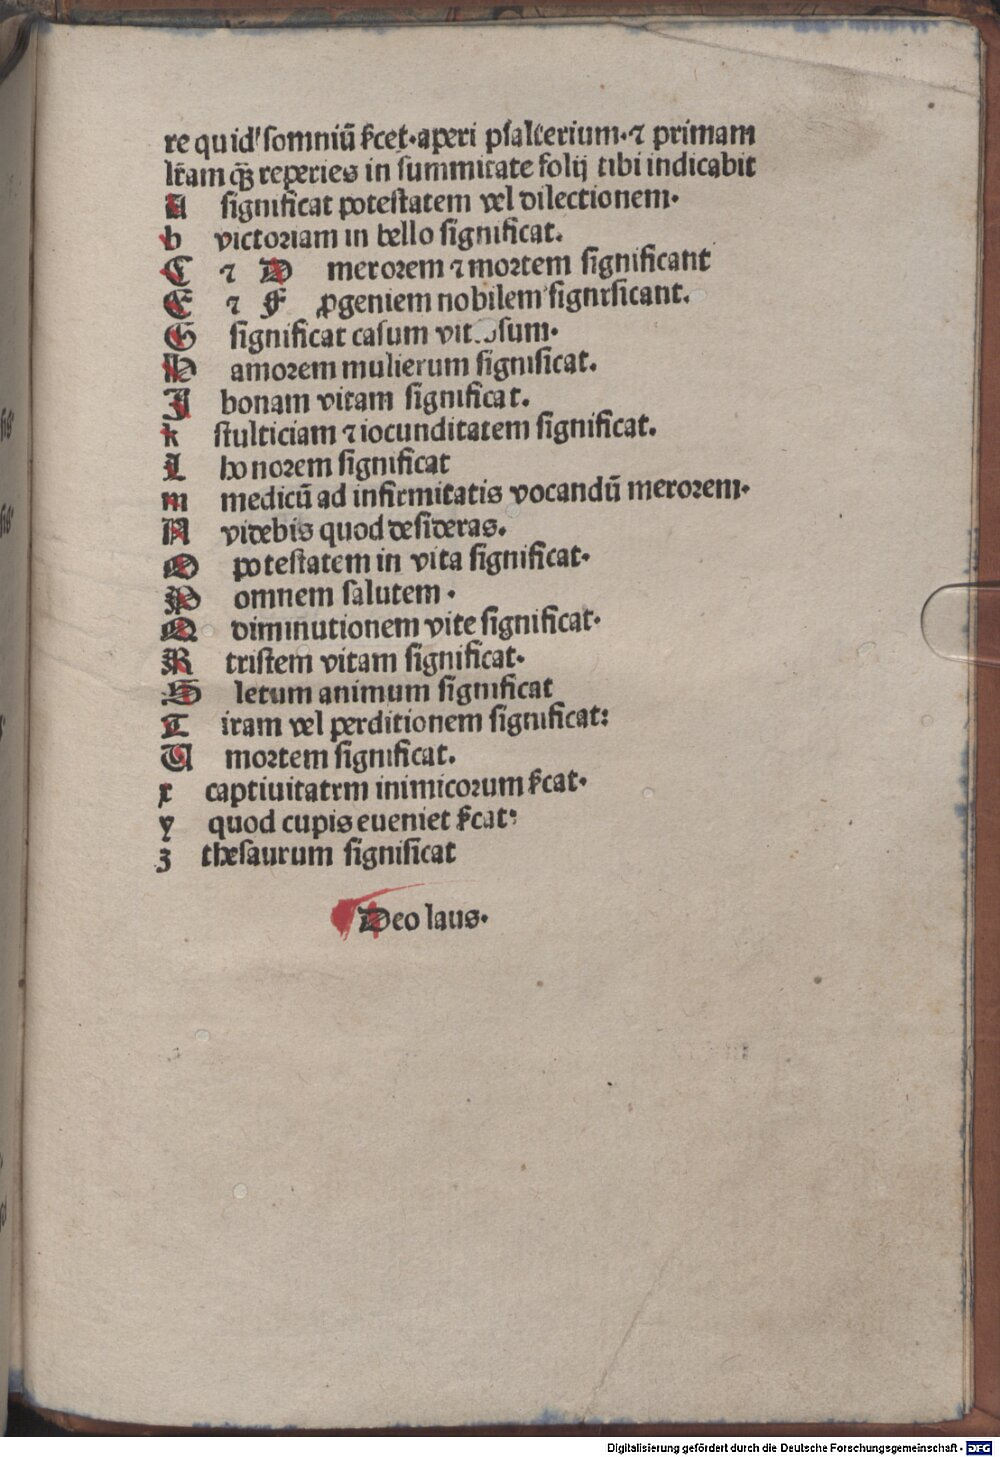 re quid' somniū ſ̄cet·aperi pſalterium·⁊ primam
lr̄am q̄ꝫ reperies in ſummitate folij tibi indicabit
A ſignificat poteſtatem vel dilectionem·
b victoꝛiam in bello ſignificat.
C ⁊ D meroꝛem ⁊ moꝛtem ſignificant
E ⁊ F ꝓgeniem nobilem ſignrſicant.
G ſignificat caſum
H amoꝛem mulierum ſigniſicat.
I bonam vitam ſignificat.
k ſtulticiam ⁊ iocunditatem ſignificat.
L honoꝛem ſignificat
m medicū ad infirmitatis vocandū meroꝛem·
N videbis quod deſideras.
O poteſtatem in vita ſignificat·
P omnem ſalutem ·
Q diminutionem vite ſignificat·
R triſtem vitam ſignificat·
S letum animum ſignificat
T iram vel perditionem ſignificat:
U moꝛtem ſignificat.
x captiuitatrm inimicoꝛum ſ̄cat·
y quod cupis eueniet ſ̄cat:
ʒ theſaurum ſigniſicat
Deo laus·
Digitalisierung gefördert durch die Deutsche Forschungsgemeinschaft · DFG